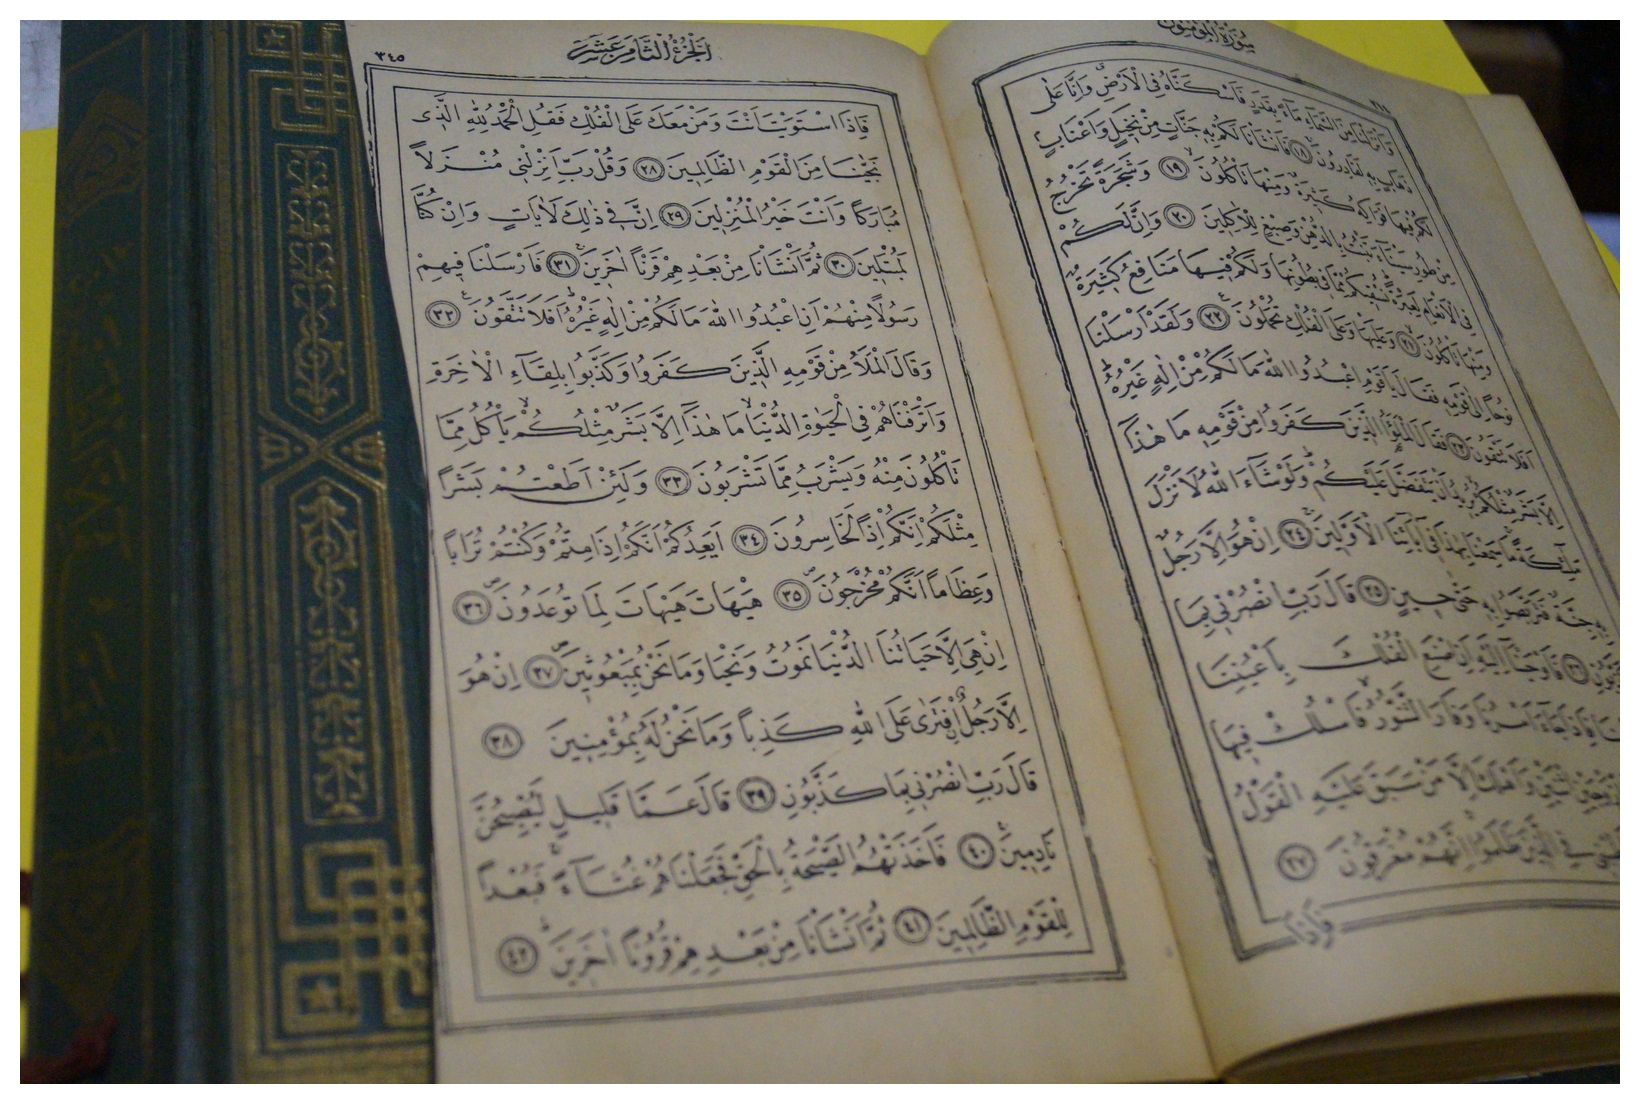 سُورَةُ الْمُؤْمِنُونَ
وَاَنْزَلْنَا مِنَ السَّمَاءِ مَاءً بِقَدَرٍ فَاَسْكَنَّاهُ فِي الْاَرْضِ وَاِنَّا عَلٰى
ذَهَابٍ بِهِ لَقَادِرُونَ ١٨ فَاَنْشَاْنَا لَكُمْ بِهِ جَنَّاتٍ مِنْ نَخِيلٍ وَاَعْنَابٍ
لَكُمْ فِيهَا فَوَاكِهُ كَثِيرَةٌ وَمِنْهَا تَاْكُلُونَ ١٩ وَشَجَرَةً تَخْرُجُ
مِنْ طُورِ سَيْنَاءَ تَنْبُتُ بِالدُّهْنِ وَصِبْغٍ لِلْاٰكِلِينَ ٢٠ وَاِنَّ لَكُمْ
فِي الْاَنْعَامِ لَعِبْرَةً نُسْقِيكُمْ مِمَّا فِي بُطُونِهَا وَلَكُمْ فِيهَا مَنَافِعُ كَثِيرَةٌ
وَمِنْهَا تَاْكُلُونَ ٢١ وَعَلَيْهَا وَعَلَى الْفُلْكِ تُحْمَلُونَ ٢٢ وَلَقَدْ اَرْسَلْنَا
نُوحاً اِلٰى قَوْمِهِ فَقَالَ يَا قَوْمِ اعْبُدُوا اللّٰهَ مَا لَكُمْ مِنْ اِلٰهٍ غَيْرُهُ
اَفَلَا تَتَّقُونَ ٢٣ فَقَالَ الْمَلَؤُا الَّذِينَ كَفَرُوا مِنْ قَوْمِهِ مَا هٰذَا
اِلَّا بَشَرٌ مِثْلُكُمْ يُرِيدُ اَنْ يَتَفَضَّلَ عَلَيْكُمْ وَلَوْ شَاءَ اللّٰهُ لَاَنْزَلَ
مَلٰئِكَةً مَا سَمِعْنَا بِهٰذَا فِي اٰبَائِنَا الْاَوَّلِينَ ٢٤ اِنْ هُوَ اِلَّا رَجُلٌ
بِهِ جِنَّةٌ فَتَرَبَّصُوا بِهِ حَتّٰى حِينٍ ٢٥ قَالَ رَبِّ انْصُرْنِي بِمَا
٢٦ فَاَوْحَيْنَا اِلَيْهِ اَنِ اصْنَعِ الْفُلْكَ بِاَعْيُنِنَا
فَاِذَا جَاءَ اَمْرُنَا وَفَارَ التَّنُّورُ فَاسْلُكْ فِيهَا
اثْنَيْنِ وَاَهْلَكَ اِلَّا مَنْ سَبَقَ عَلَيْهِ الْقَوْلُ
فِي الَّذِينَ ظَلَمُوا اِنَّهُمْ مُغْرَقُونَ ٢٧
فَاِذَا
اَلْجُزْءُ الثَّامِنَ عَشَرَ
٣٤٥
فَاِذَا اسْتَوَيْتَ اَنْتَ وَمَنْ مَعَكَ عَلَى الْفُلْكِ فَقُلِ الْحَمْدُ لِلّٰهِ الَّذِي
نَجّٰينَا مِنَ الْقَوْمِ الظَّالِمِينَ ٢٨ وَقُلْ رَبِّ اَنْزِلْنِي مُنْزَلاً
مُبَارَكاً وَاَنْتَ خَيْرُ الْمُنْزِلِينَ ٢٩ اِنَّ فِي ذٰلِكَ لَاٰيَاتٍ وَاِنْ كُنَّا
لَمُبْتَلِينَ ٣٠ ثُمَّ اَنْشَاْنَا مِنْ بَعْدِهِمْ قَرْناً اٰخَرِينَ ٣١ فَاَرْسَلْنَا فِيهِمْ
رَسُولاً مِنْهُمْ اَنِ اعْبُدُوا اللّٰهَ مَا لَكُمْ مِنْ اِلٰهٍ غَيْرُهُ اَفَلَا تَتَّقُونَ ٣٢
وَقَالَ الْمَلَاُ مِنْ قَوْمِهِ الَّذِينَ كَفَرُوا وَكَذَّبُوا بِلِقَاءِ الْاٰخِرَةِ
وَاَتْرَفْنَاهُمْ فِي الْحَيٰوةِ الدُّنْيَا مَا هٰذَا اِلَّا بَشَرٌ مِثْلُكُمْ يَاْكُلُ مِمَّا
تَاْكُلُونَ مِنْهُ وَيَشْرَبُ مِمَّا تَشْرَبُونَ ٣٣ وَلَئِنْ اَطَعْتُمْ بَشَراً
مِثْلَكُمْ اِنَّكُمْ اِذاً لَخَاسِرُونَ ٣٤ اَيَعِدُكُمْ اَنَّكُمْ اِذَا مِتُّمْ وَكُنْتُمْ تُرَاباً
وَعِظَاماً اَنَّكُمْ مُخْرَجُونَ ٣٥ هَيْهَاتَ هَيْهَاتَ لِمَا تُوعَدُونَ ٣٦
اِنْ هِيَ اِلَّا حَيَاتُنَا الدُّنْيَا نَمُوتُ وَنَحْيَا وَمَا نَحْنُ بِمَبْعُوثِينَ ٣٧ اِنْ هُوَ
اِلَّا رَجُلٌ افْتَرٰى عَلَى اللّٰهِ كَذِباً وَمَا نَحْنُ لَهُ بِمُؤْمِنِينَ ٣٨
قَالَ رَبِّ انْصُرْنِي بِمَا كَذَّبُونِ ٣٩ قَالَ عَمَّا قَلِيلٍ لَيُصْبِحُنَّ
نَادِمِينَ ٤٠ فَاَخَذَتْهُمُ الصَّيْحَةُ بِالْحَقِّ فَجَعَلْنَاهُمْ غُثَاءً فَبُعْداً
لِلْقَوْمِ الظَّالِمِينَ ٤١ ثُمَّ اَنْشَاْنَا مِنْ بَعْدِهِمْ قُرُوناً اٰخَرِينَ ٤٢